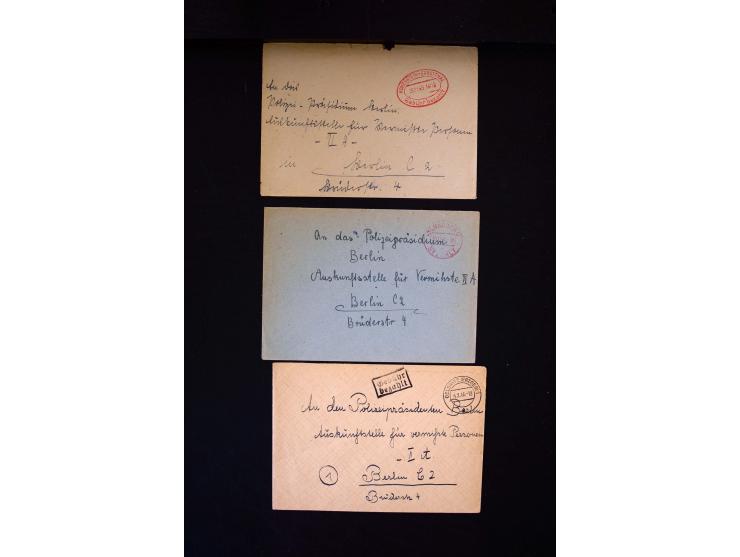 An das
Polizei-Präsidium Berlin.
Auskunftsstelle für Vermißte Personen
- II A -
in Berlin C 2
Brüderstr. 4
Gebühr bezahlt
An das Polizeipräsidium
Berlin
Auskunftsstelle für Vermihste II A
Berlin C2
Brüderstr 4
Gebühr
bezahlt
An den Polizeipräsidenten Berlin
Auskunftstelle für vermißte Personen
- II A
1
Berlin C 2
Brüderstr 4